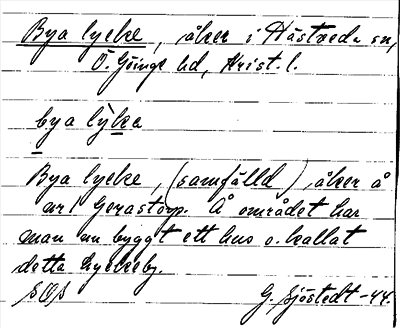 Bya lycke, åker i Hästveda sn,
Ö. Göinge hd, Krist. l.
bya lỳka
Bya lycke, (samfälld), åker å
nr 1 Gerastorp. Å området har
man nu byggt ett hus o. kallat
detta Lyckeby.
SOS G. Sjöstedt -44.